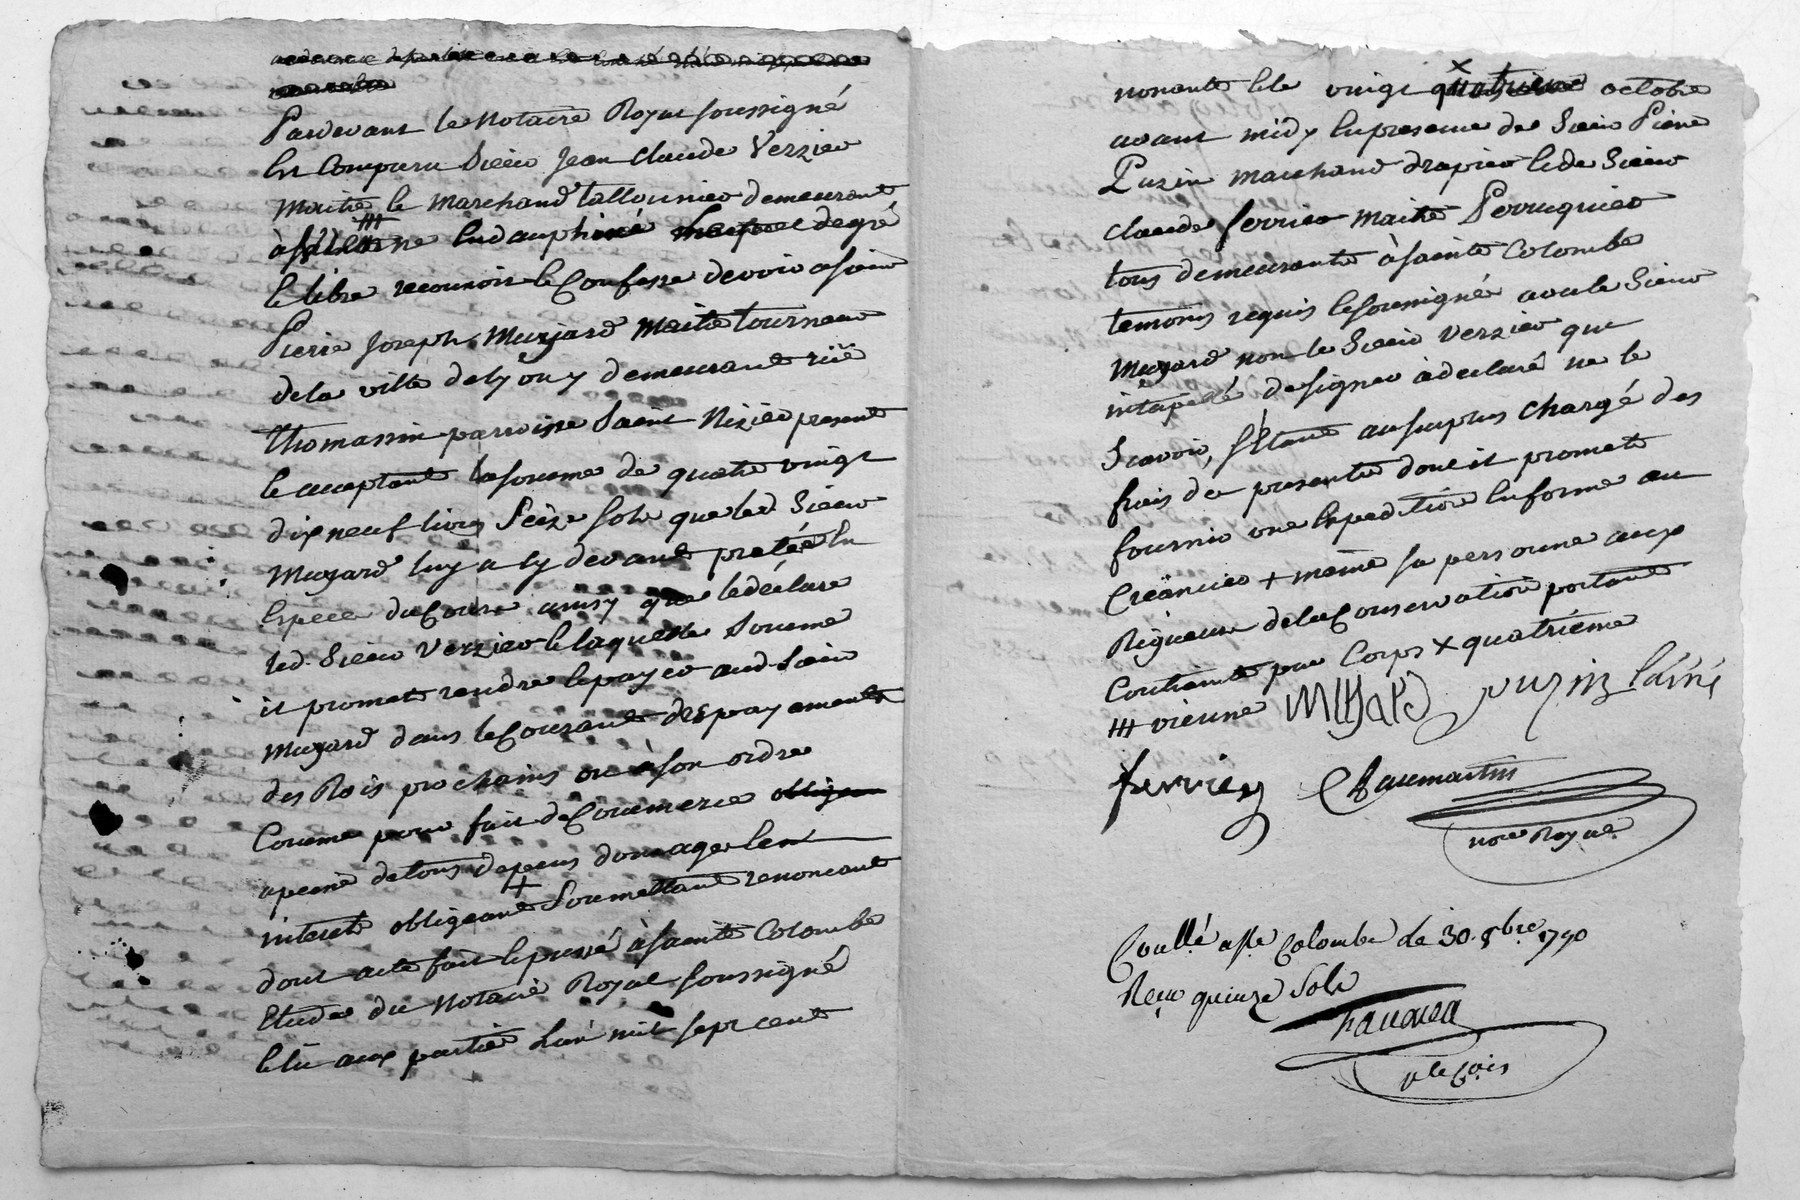 Pardevant le Notaire Royal soussigné
Est Comparu Sieur Jean Claude Verzier
Maitre & Marchand tallounier demeurant
à ₶ en dauphiné de gré
& libre reconnoit & Confesse devoir a sieur
Pierre Joseph Muzard Maitre tourneur
de la ville de lyon y demeurant rüe
thomassin parroisse Saint Nizier present
& acceptant la somme de quatre vingt
dix neuf livres Seize sols que led Sieur
Muzard luy a cy devant prété En
Espece du Cours ainsy que le déclare
led. Sieur Verzier & laquelle Somme
il promet rendre & payer aud. Sieur
Muzard dans le Courant des payements
des Rois prochains ou à son ordre
Comme pour fait de Commerce
a peine de tous depens domages &
interets obligeant + Soumettant renonçant
dont acte fait & passé à Sainte Colombe
Etude du Notaire Royal soussigné
& lû aux parties L'an mil sept cent
nonante & le vingt × octobre
avant midy En presence de Sieur Pierre
Puzin marchand drapier & de Sieur
Claude ferrier maitre Perruquier
tous demeurants à sainte Colombe
temoins requis & soussignés avec le Sieur
Muzard non le Sieur Verzier qui
interpellé de signer a declaré ne le
Scavoir, s'étant au surplus chargé des
frais des presentes dont il promet
fournir une Expedition En forme au
Créancier + même sa personne aux
Rigueurs de la Conservation portant
Contrainte par Corps × quatrième
₶ vienne Muzard puzin l'ainé
ferrier Chasemartin
nore Royal
Coullé a Ste Colombe le 30. 8bre 1790
Reçu quinze Sols